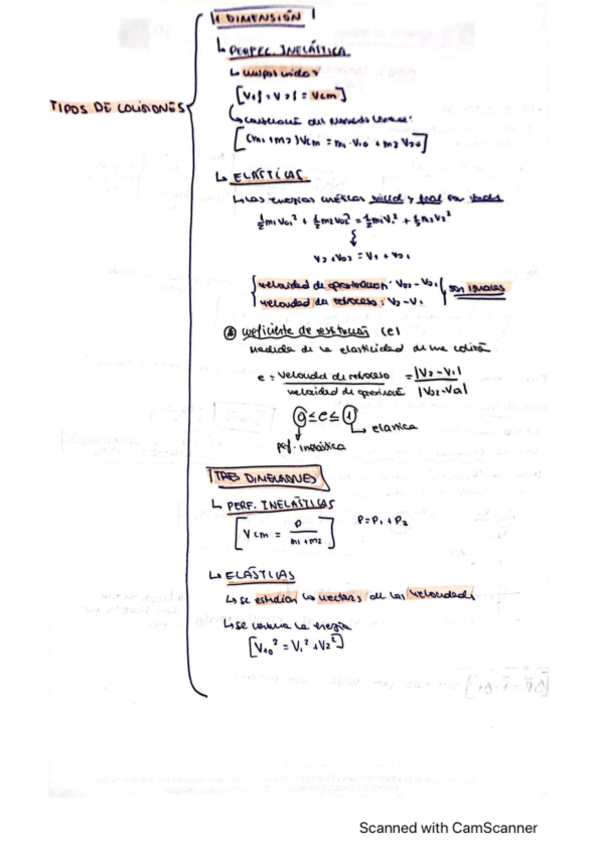 TIPOS DE COLISIONES
1 DIMENSIÓN
↳ PERFEC. INELÁSTICA
↳ cuerpos unidos
[V1f = V2f = Vcm]
↳ conservación del momento lineal:
[(m1 + m2) Vcm = m1 · V10 + m2 V20]
↳ ELÁSTICAS
↳ Las energías cinéticas inicial y final son
½m1V01² + ½m2V02² = ½m1V1² + ½m2V2²
velocidad de aproximación: V02 - V01
velocidad de retroceso: V2 - V1
son iguales
coeficiente de restitución (e)
medida de la elasticidad de una colisión
e = velocidad de retroceso / velocidad de aproximación = |V2 - V1| / |V02 - V01|
0 ≤ e ≤ 1
↳ elástica
perf. inelástica
TRES DIMENSIONES
↳ PERF. INELÁSTICAS
[Vcm = P / m1 + m2] P = P1 + P2
↳ ELÁSTICAS
↳ se estudian los vectores de las velocidades
↳ se conserva la energía
[V10² = V1² + V2²]
Scanned with CamScanner